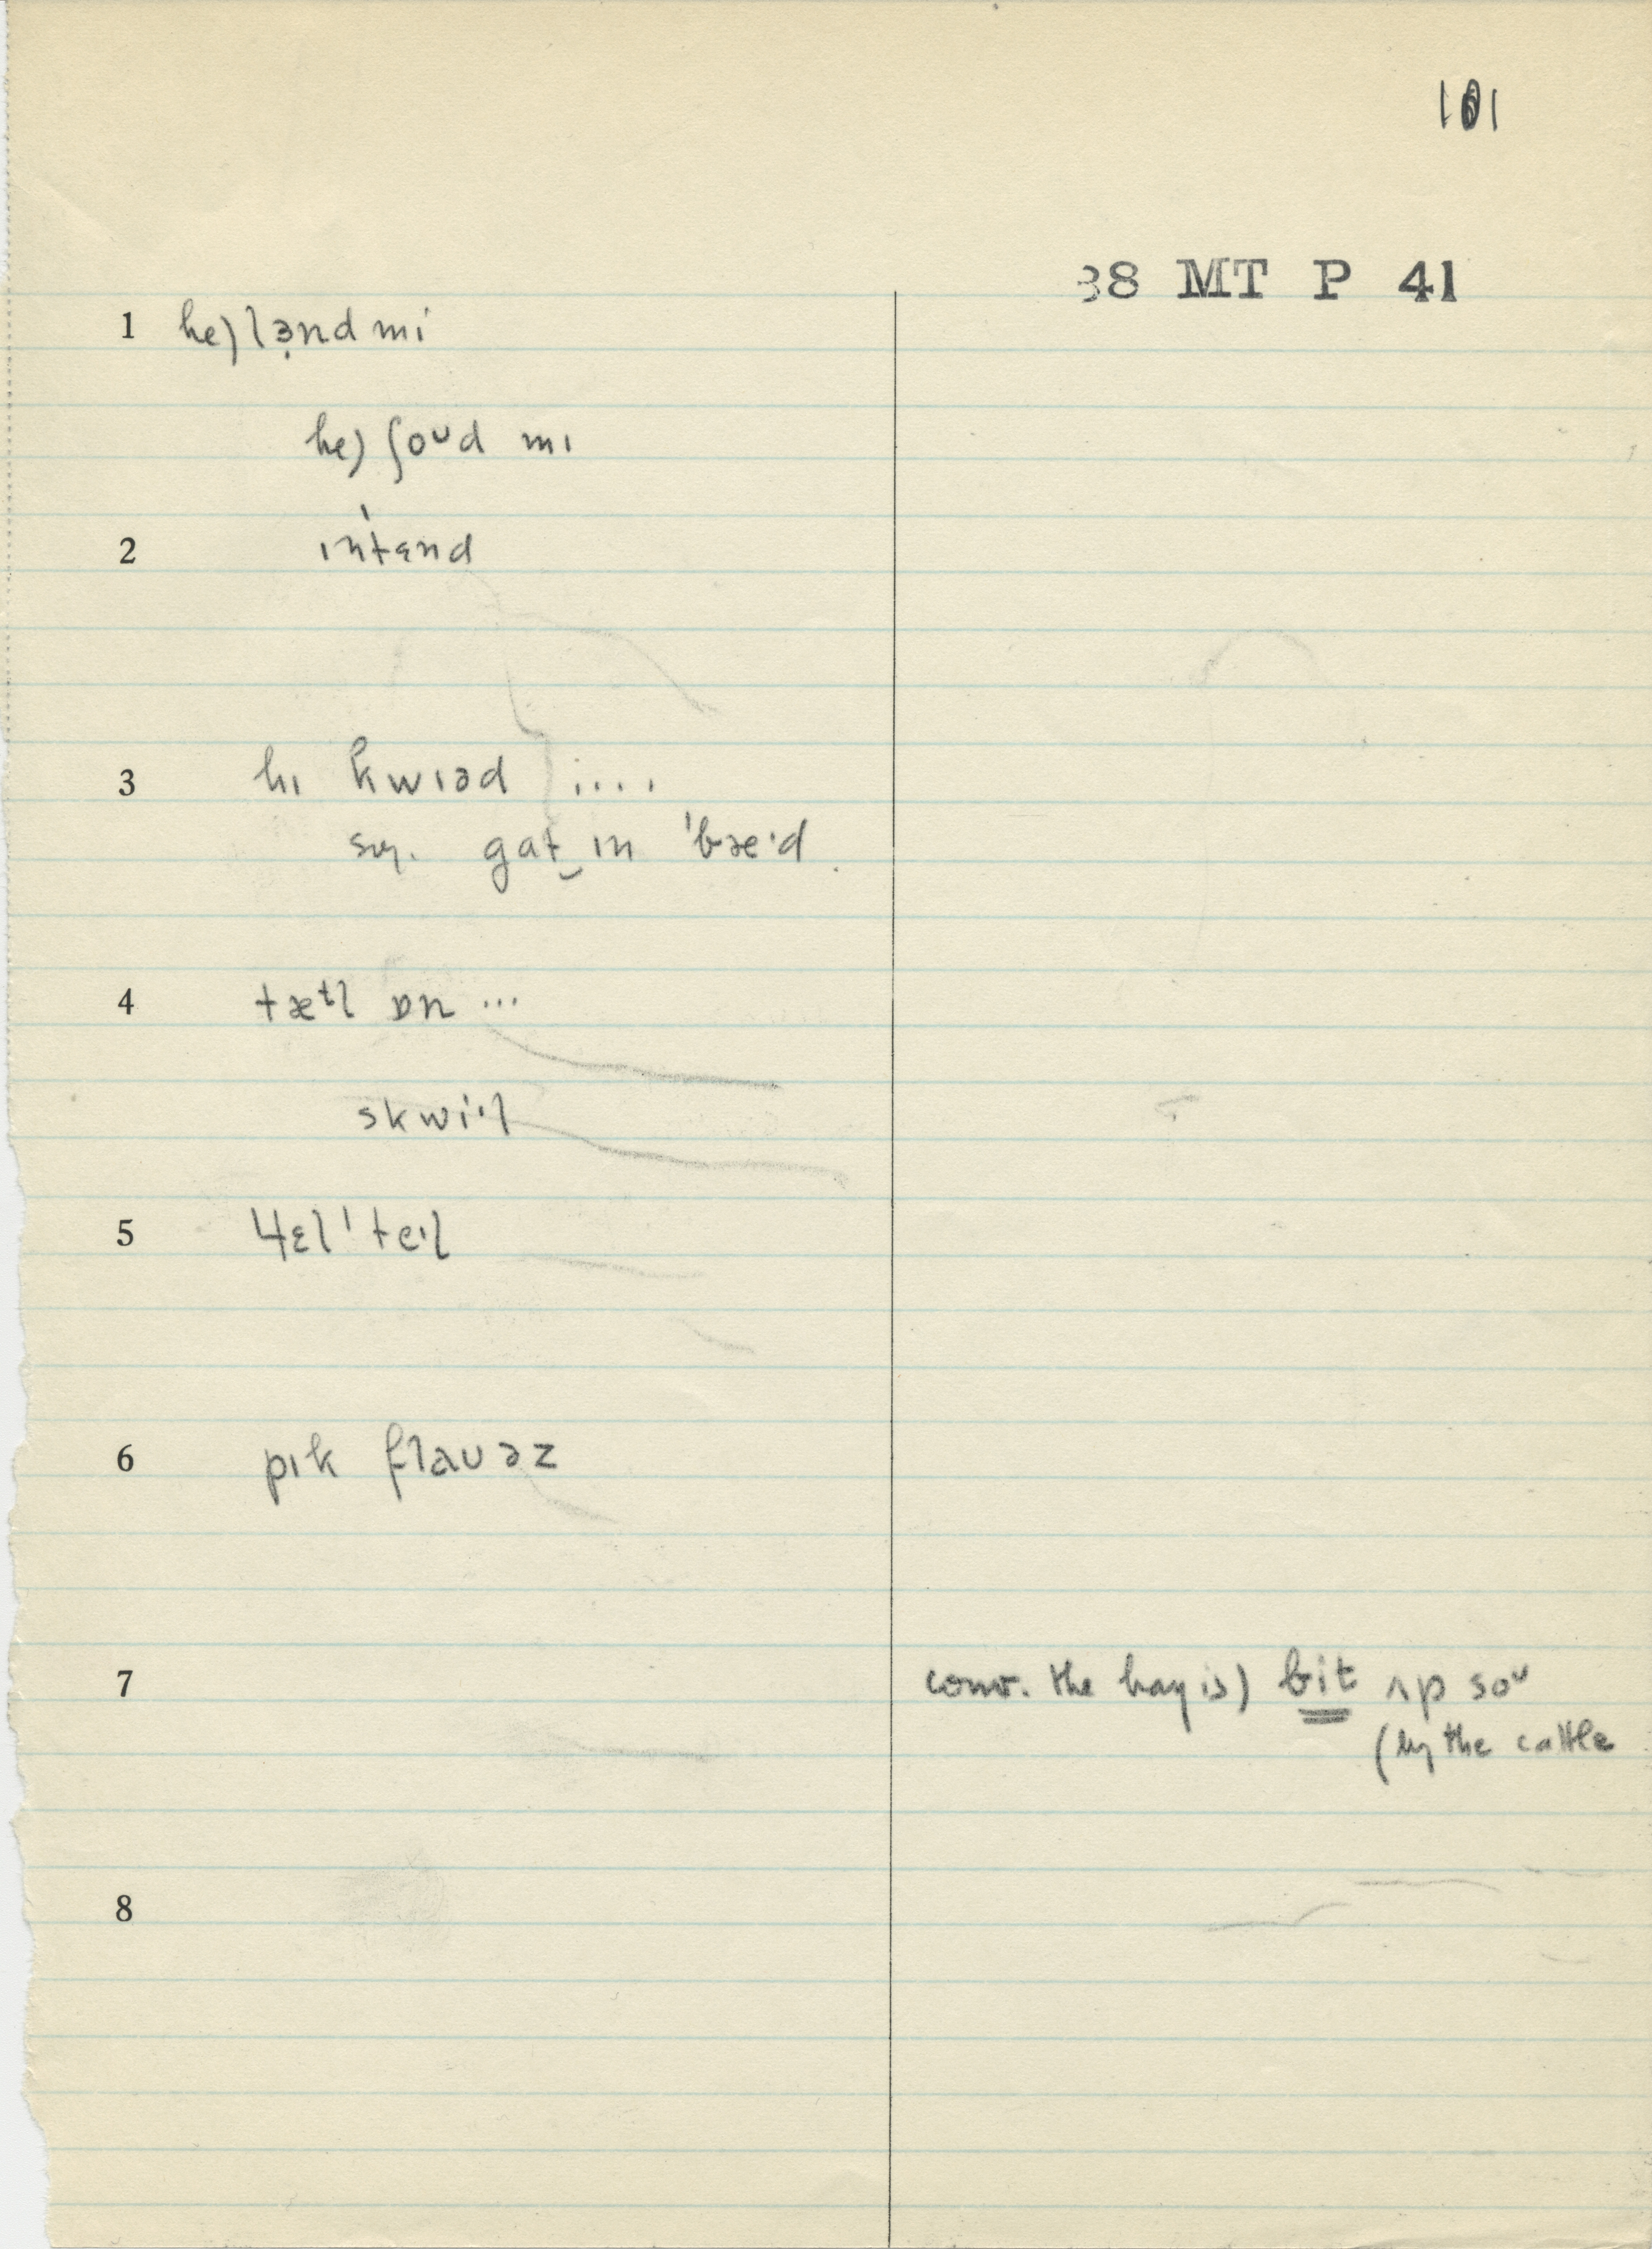 101
38 MT P 41
1 he) lə̣nd mi
he) ʃoᴜd mɪ
2 ɪn'tɛnd
3 hɪ kwɪəd ....
sug. gat‿ɪn 'bæ·d
4 tæᵗl ɒn ...
skwi·l
5 ɥɛl 'te·l
6 pɪk flaᴜəz
7 conv. the hay is) bit ʌp soᴜ
(by the cattle
8